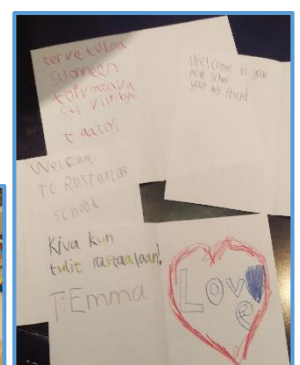 terve tuloa
suomeen
toivottava
t aatos
Welcome to your
new school
your my friend
Welcome
TO Rastaalas
school
Kiva kun
tulit rastaalaan!
T:Emma
Love